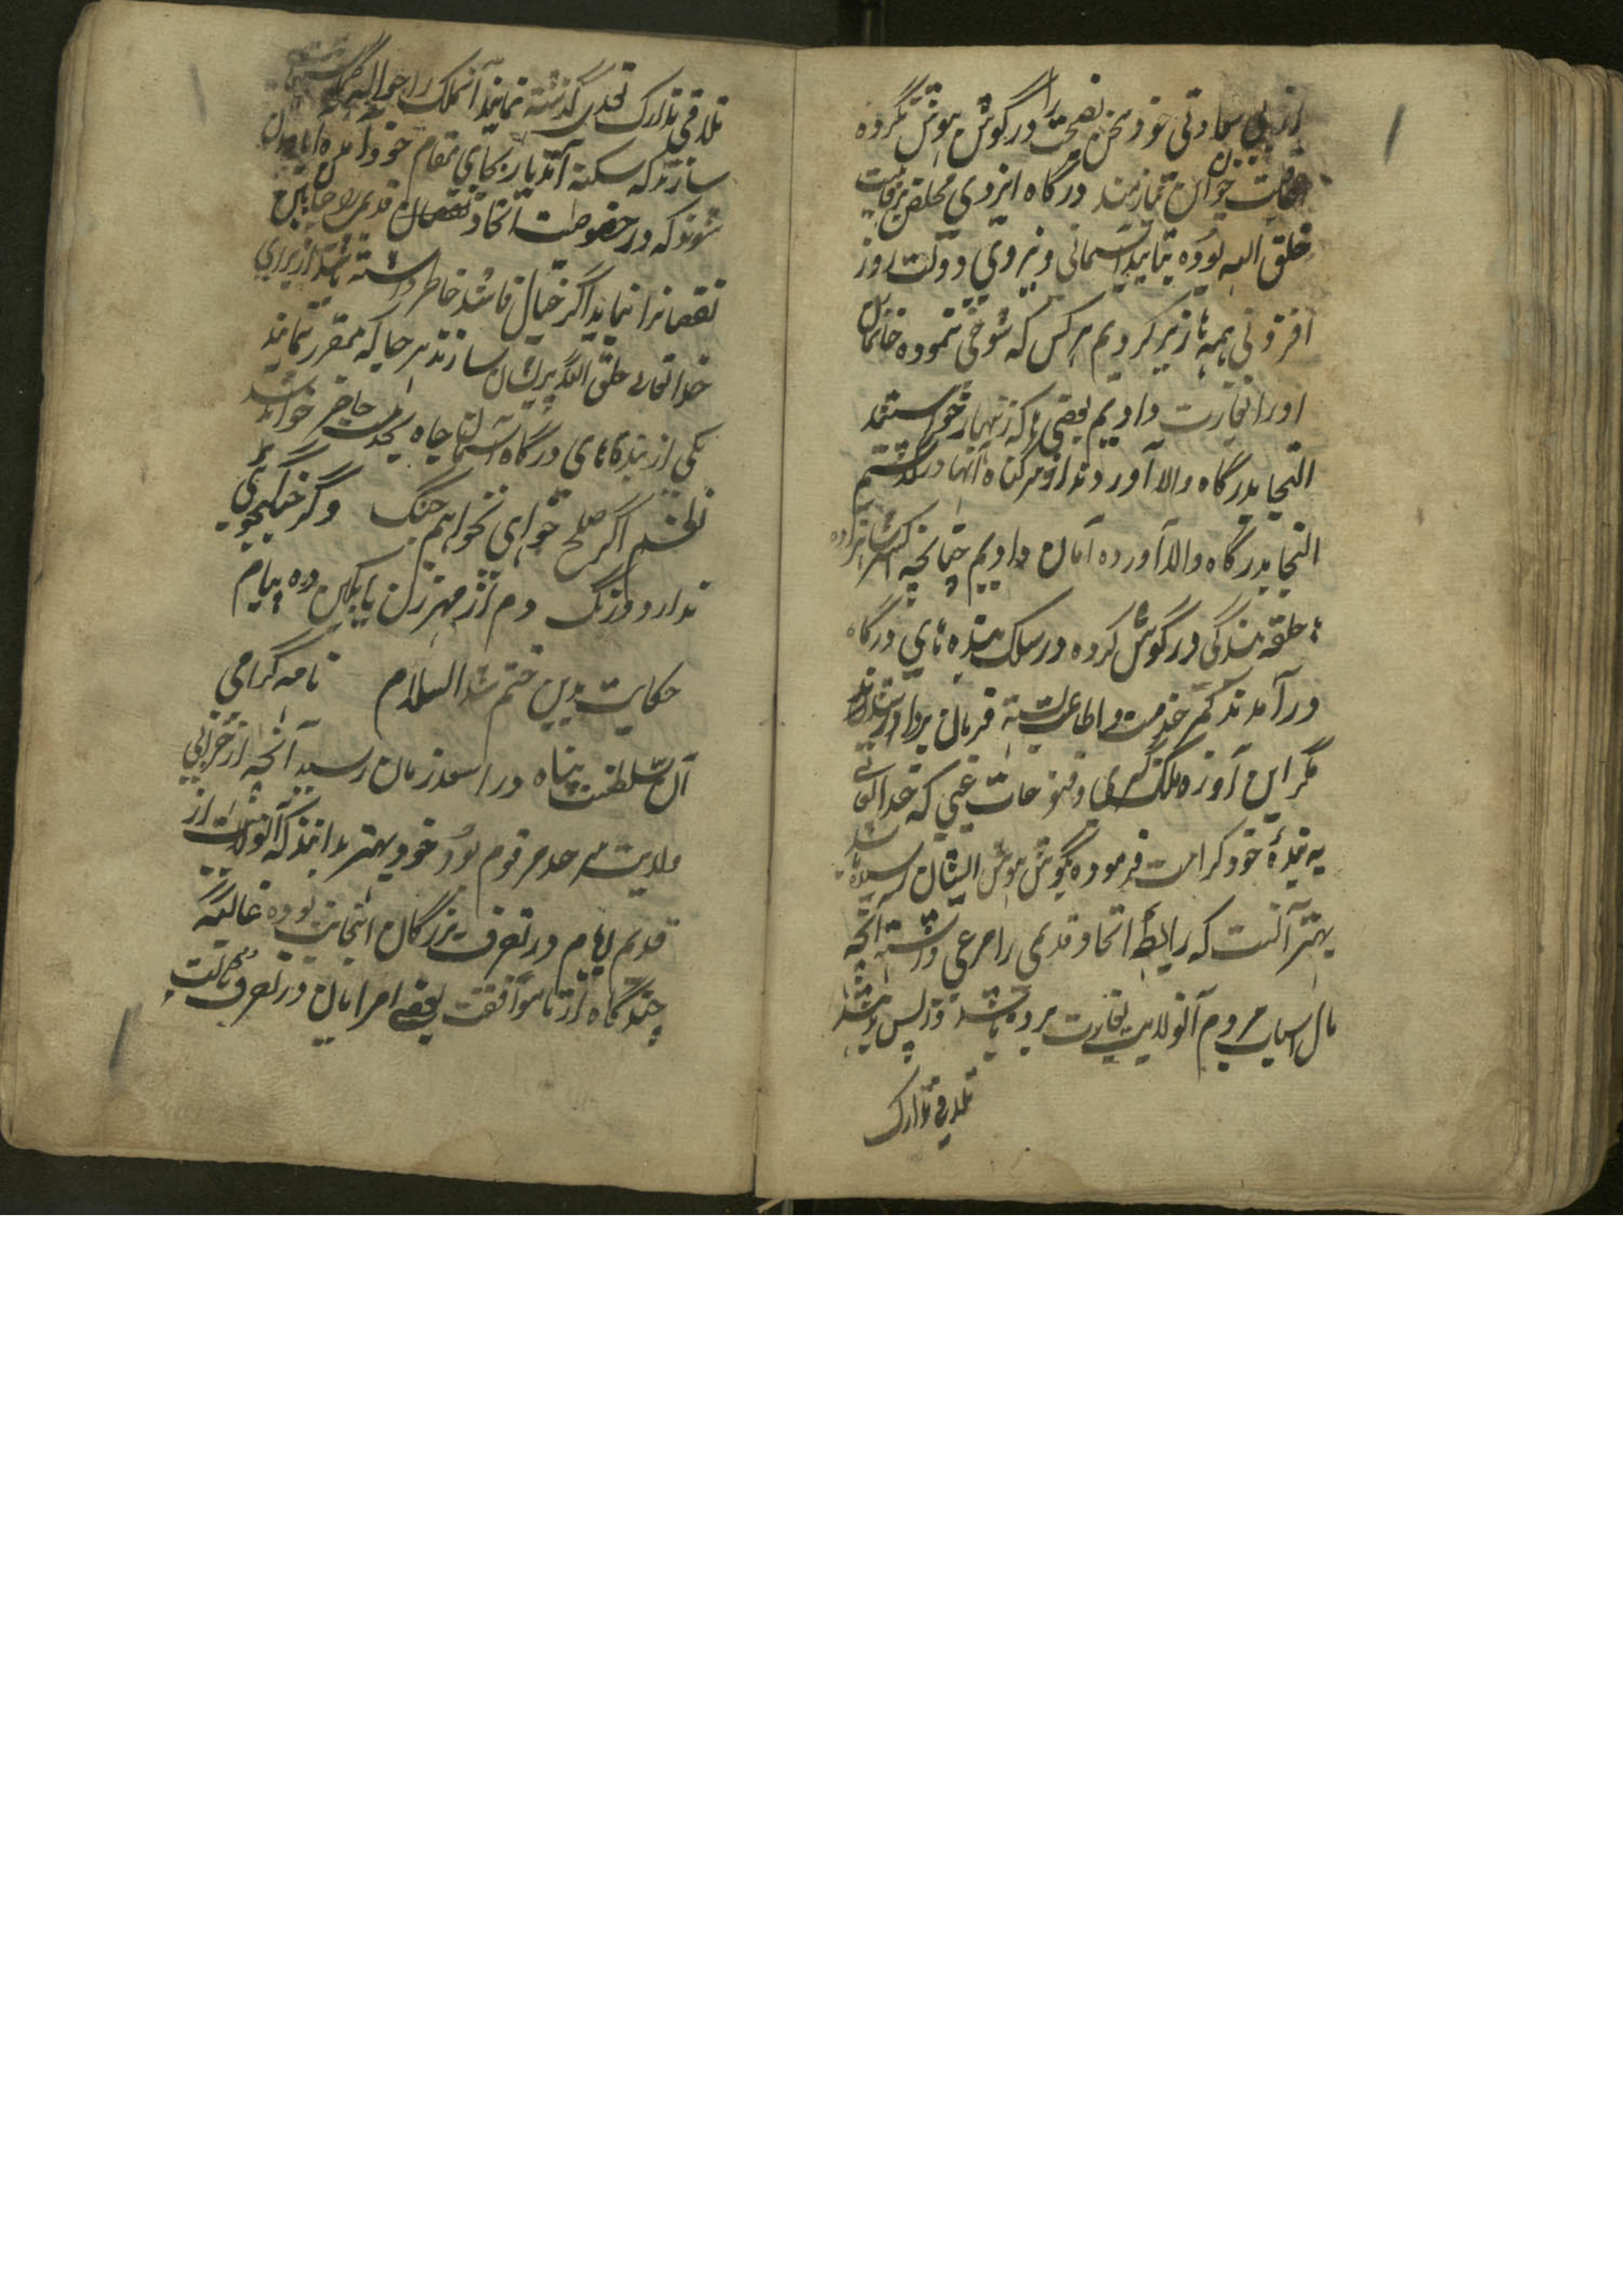 از بی سعادتی خود سخن نصیحت را در گوش هوش نکرده
عاقبت چون این نیازمند درگاه ایزدی
خلق الله بوده بتایید آسمانی و نیروی دولت روز
افزونی همه ها زیر کردیم هر کس که شوخی نموده خانمان
اورا بغارت دادیم بعضی ها که زنهار خواستند
التجا بدرگاه والا آوردند از سر گناه آنها درگذشتیم
التجا بدرگاه والا آورده امان دادیم چنانچه اکثر
حلقه بندگی در گوش کرده در سلک بنده های درگاه
در آمدند کمر خدمت و اطاعت بسته فرمان بردار شدند
مگر این آوزه ملک گیری و فتوحات غیبی که خدا تعالی
به بنده خود کرامت فرموده بگوش هوش ایشان نرسیده باشد
بهتر آنست که رابطه اتحاد قدیمی را مرعی داشته آنچه
مال اسباب مردم آنولایت بغارت برده باشند واپس بدهند
تلافی تدارک
تلافی تدارک تعدی گذشته نمایند آنملک را حواله
سازند که سکنه آندیار بجای مقام خود آمده آبادان
شوند که در خصوصیت اتحاد قدیم جانبین
نقصانرا نیاید اگر خیال فاسد خاطر داشته باشند از برای
خدا تعالی خلق الله پریشان نسازند هر جا که مقرر نمایند
یکی از بندگاهای درگاه آسمان جاه بجنگ حاضر خواهد شد
نظم اگر صلح خواهی نخواهم جنگ وگر جنگ جویی
ندارد درنگ دم از مهر زن یا بکین ده پیام
حکایت بدین ختم شد السلام نامه گرامی
آن سلطنت پناه در اسعد زمان رسید آنچه از خرابی
ولایت سرحد مرقوم بود خود بهتر بدانند که آنولایت از
قدیم ایام در تصرف بزرگان اینجانب بوده
چند گاه از ناموافقت بعضی امرایان در تصرف